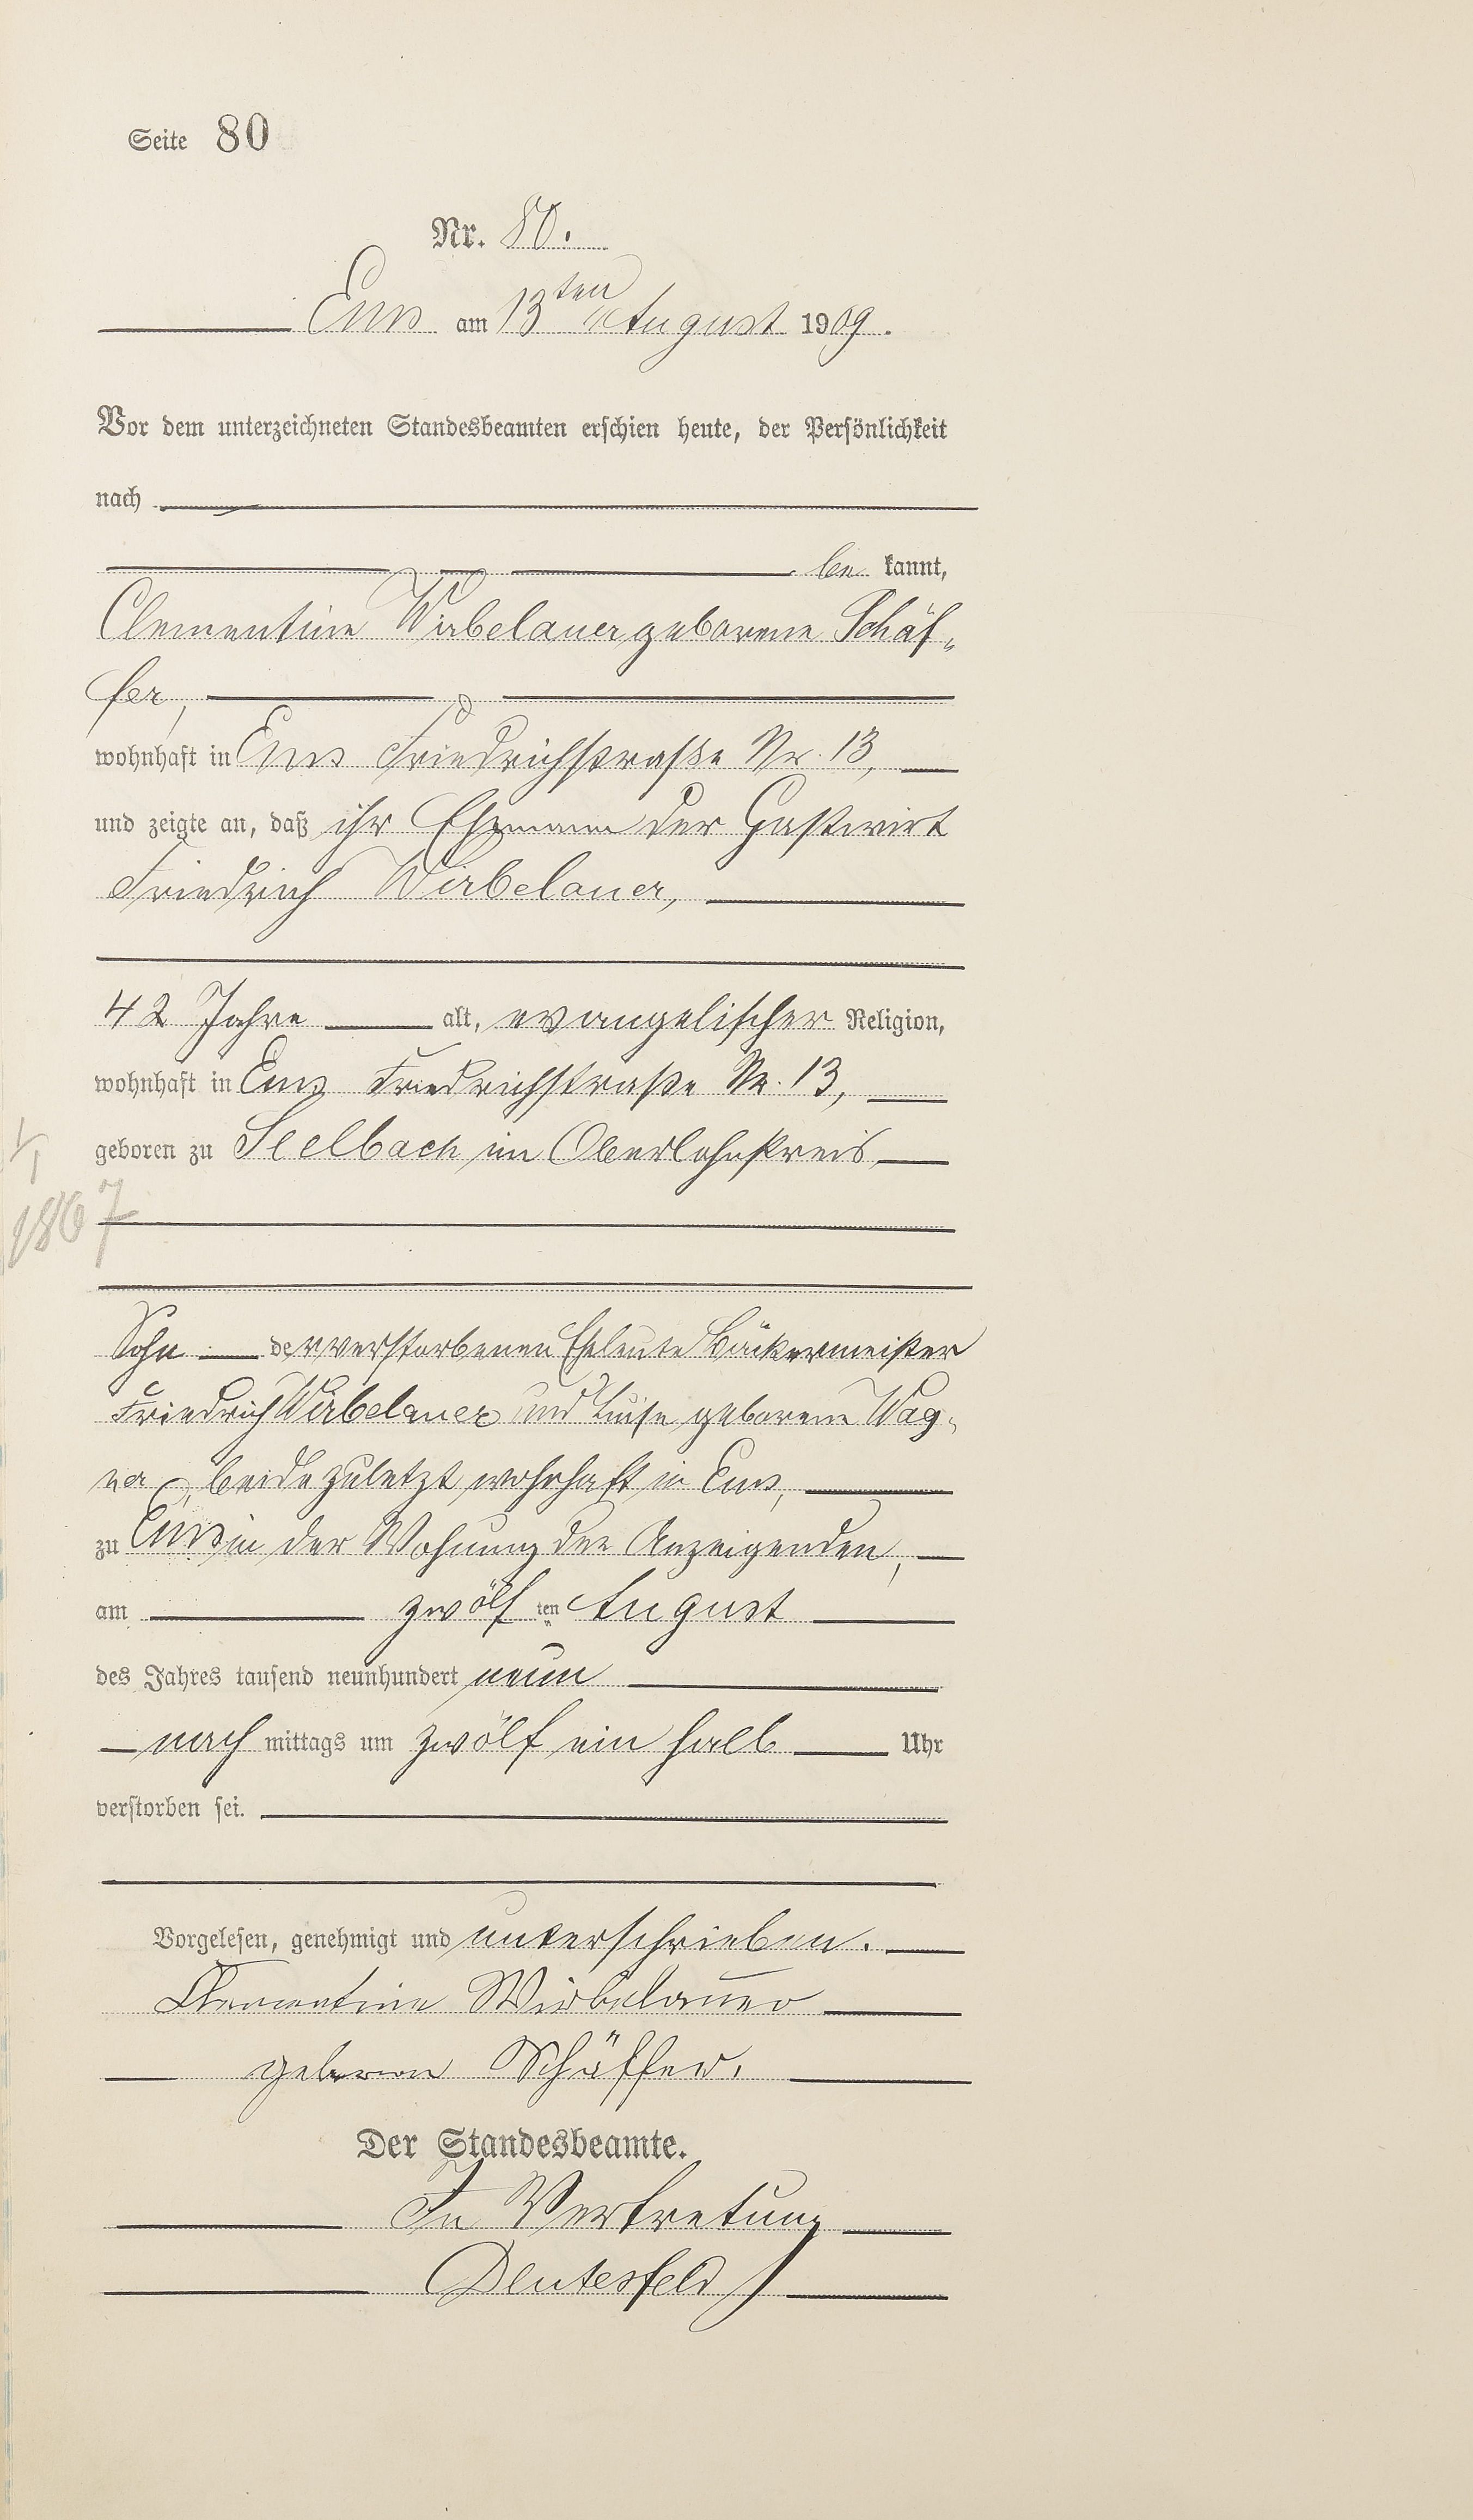 Seite 80
Nr. 80.
Ems am 13ten August 1909.
Vor dem unterzeichneten Standesbeamten erschien heute, der Persönlichkeit
nach
be kannt,
Clementine Wirbelauer geborene Schäf-
fer,
wohnhaft in Ems Friedrichstraße Nr. 13,
und zeigte an, daß ihr Ehemann der Gastwirt
Friedrich Wirbelauer,
42 Jahre alt, evangelischer Religion,
wohnhaft in Ems Friedrichstraße Nr. 13,
geboren zu Seelbach im Oberlahnkreis
1867
Sohn der verstorbenen Eheleute Bäckermeister
Friedrich Wirbelauer und Luise geborene Wag-
ner, beide zuletzt wohnhaft in Ems,
zu Ems in der Wohnung der Anzeigenden,
am zwölf ten August
des Jahres tausend neunhundert neun
nach mittags um zwölf ein halb Uhr
verstorben sei.
Vorgelesen, genehmigt und unterschrieben.
Clementine Wirbelauer
geborene Schäffer.
Der Standesbeamte.
In Vertretung
Deutesfeld